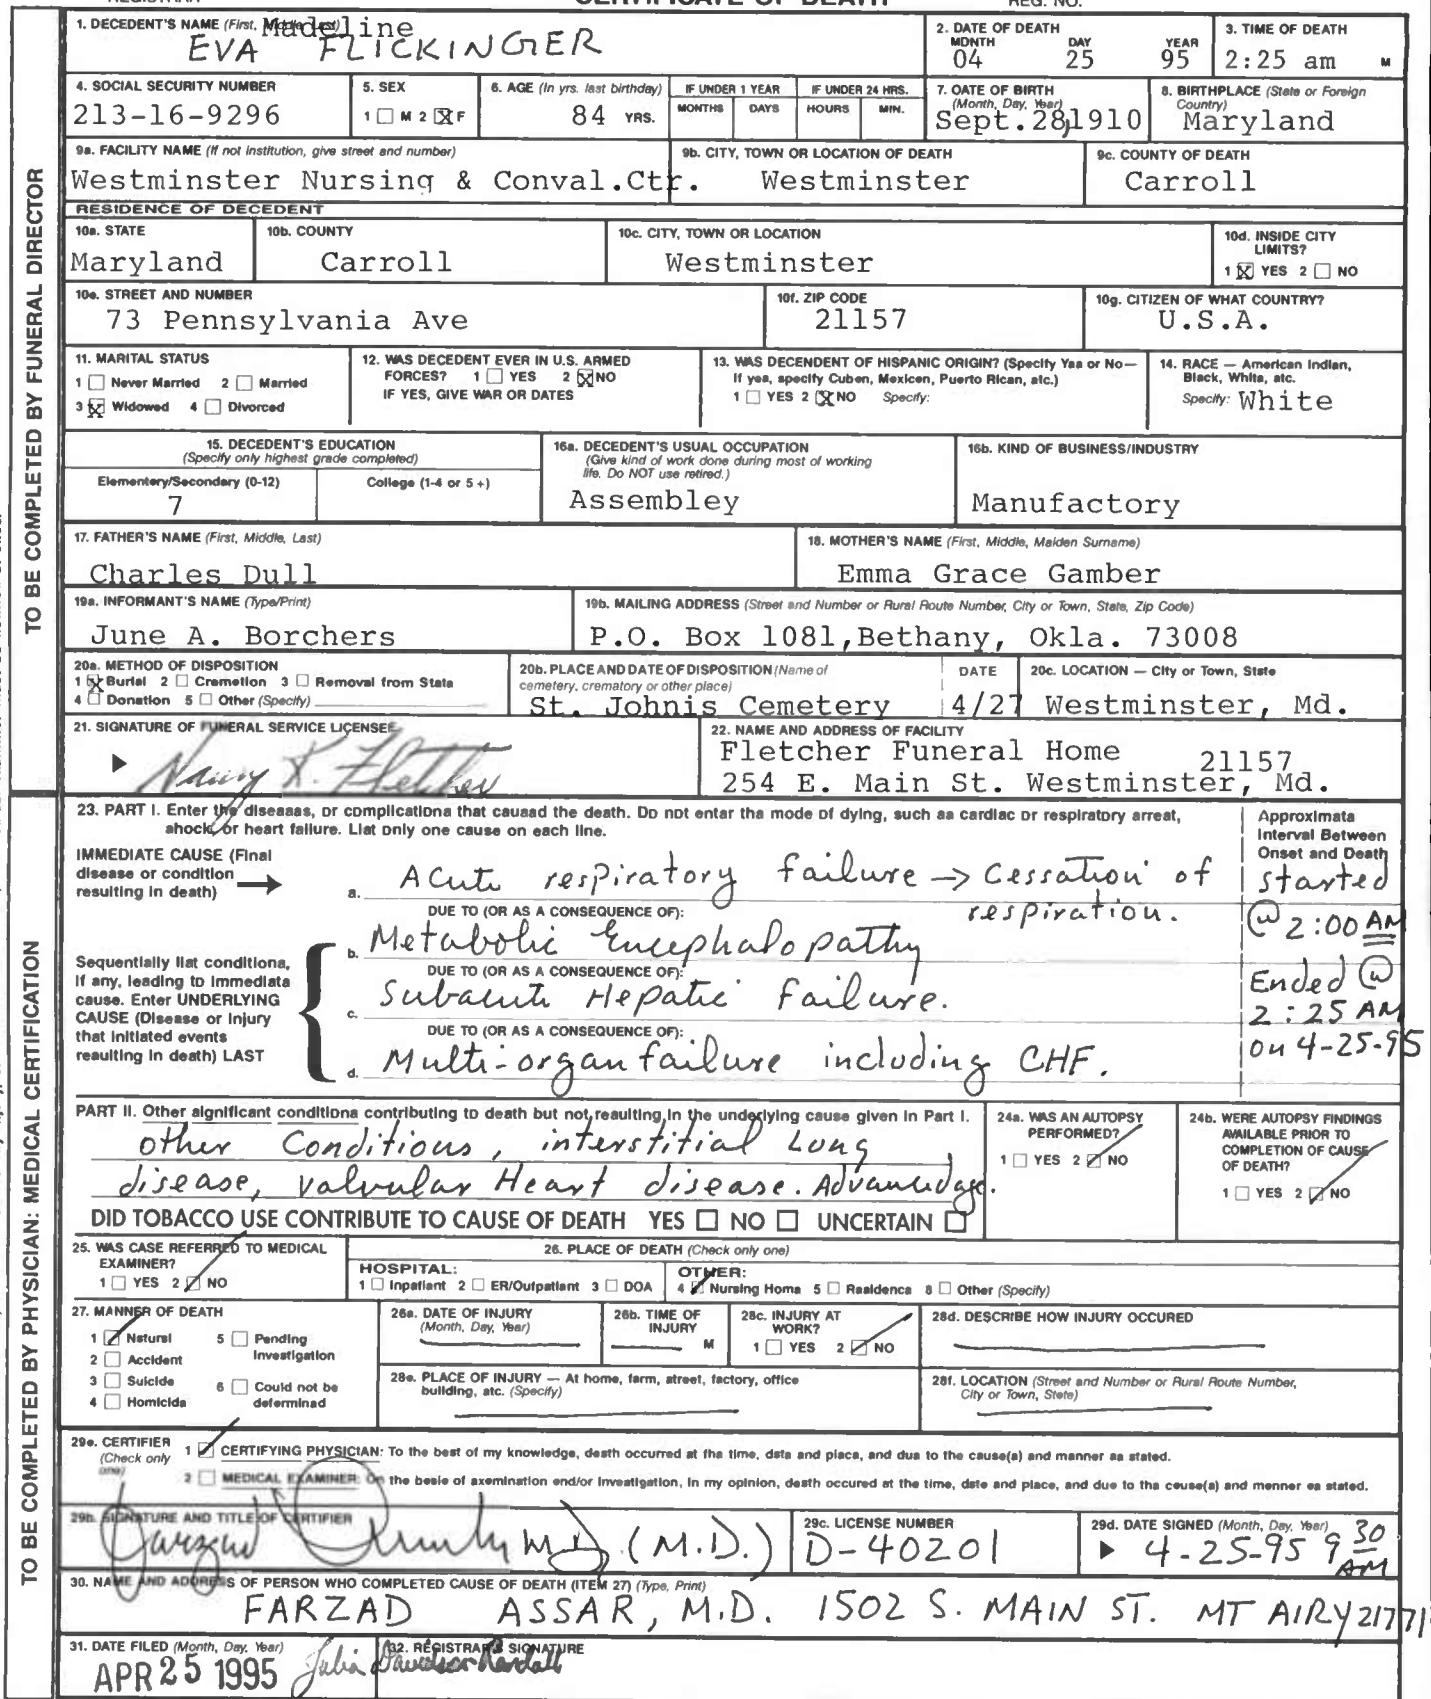 CERTIFICATE OF DEATH
REG. NO.
TO BE COMPLETED BY FUNERAL DIRECTOR
1. DECEDENT'S NAME (First, Middle, Last) Madeline
EVA FLICKINGER
2. DATE OF DEATH
MONTH DAY YEAR
04 25 95
3. TIME OF DEATH
2:25 am M
4. SOCIAL SECURITY NUMBER
213-16-9296
5. SEX
1 ☐ M 2 ☒ F
6. AGE (In yrs. last birthday)
84 YRS.
IF UNDER 1 YEAR
MONTHS DAYS
IF UNDER 24 HRS.
HOURS MIN.
7. DATE OF BIRTH
(Month, Day, Year)
Sept.28,1910
8. BIRTHPLACE (State or Foreign
Country)
Maryland
9a. FACILITY NAME (If not institution, give street and number)
Westminster Nursing & Conval.Ctr.
9b. CITY, TOWN OR LOCATION OF DEATH
Westminster
9c. COUNTY OF DEATH
Carroll
RESIDENCE OF DECEDENT
10a. STATE
Maryland
10b. COUNTY
Carroll
10c. CITY, TOWN OR LOCATION
Westminster
10d. INSIDE CITY
LIMITS?
1 ☒ YES 2 ☐ NO
10e. STREET AND NUMBER
73 Pennsylvania Ave
10f. ZIP CODE
21157
10g. CITIZEN OF WHAT COUNTRY?
U.S.A.
11. MARITAL STATUS
1 ☐ Never Married 2 ☐ Married
3 ☒ Widowed 4 ☐ Divorced
12. WAS DECEDENT EVER IN U.S. ARMED
FORCES? 1 ☐ YES 2 ☒ NO
IF YES, GIVE WAR OR DATES
13. WAS DECENDENT OF HISPANIC ORIGIN? (Specify Yes or No—
If yes, specify Cuban, Mexican, Puerto Rican, etc.)
1 ☐ YES 2 ☒ NO Specify:
14. RACE — American Indian,
Black, White, etc.
Specify: White
15. DECEDENT'S EDUCATION
(Specify only highest grade completed)
Elementary/Secondary (0-12) College (1-4 or 5+)
7
16a. DECEDENT'S USUAL OCCUPATION
(Give kind of work done during most of working
life. Do NOT use retired.)
Assembley
16b. KIND OF BUSINESS/INDUSTRY
Manufactory
17. FATHER'S NAME (First, Middle, Last)
Charles Dull
18. MOTHER'S NAME (First, Middle, Maiden Surname)
Emma Grace Gamber
19a. INFORMANT'S NAME (Type/Print)
June A. Borchers
19b. MAILING ADDRESS (Street and Number or Rural Route Number, City or Town, State, Zip Code)
P.O. Box 1081,Bethany, Okla. 73008
20a. METHOD OF DISPOSITION
1 ☒ Burial 2 ☐ Cremation 3 ☐ Removal from State
4 ☐ Donation 5 ☐ Other (Specify)
20b. PLACE AND DATE OF DISPOSITION (Name of
cemetery, crematory or other place)
St. Johnis Cemetery
DATE
4/27
20c. LOCATION — City or Town, State
Westminster, Md.
21. SIGNATURE OF FUNERAL SERVICE LICENSEE
Nancy K. Fletcher
22. NAME AND ADDRESS OF FACILITY
Fletcher Funeral Home 21157
254 E. Main St. Westminster, Md.
TO BE COMPLETED BY PHYSICIAN: MEDICAL CERTIFICATION
23. PART I. Enter the diseases, or complications that caused the death. Do not enter the mode of dying, such as cardiac or respiratory arrest,
shock, or heart failure. List only one cause on each line.
Approximate
Interval Between
Onset and Death
IMMEDIATE CAUSE (Final
disease or condition
resulting in death)
a. Acute respiratory failure → Cessation of
respiration.
started
@ 2:00 AM
Ended @
2:25 AM
on 4-25-95
DUE TO (OR AS A CONSEQUENCE OF):
b. Metabolic Encephalopathy
DUE TO (OR AS A CONSEQUENCE OF):
Sequentially list conditions,
if any, leading to immediate
cause. Enter UNDERLYING
CAUSE (Disease or injury
that initiated events
resulting in death) LAST
c. Subacute Hepatic Failure.
DUE TO (OR AS A CONSEQUENCE OF):
d. Multi-organ failure including CHF.
PART II. Other significant conditions contributing to death but not resulting in the underlying cause given in Part I.
other Conditions, interstitial Lung
disease, valvular Heart disease. Advanced age.
DID TOBACCO USE CONTRIBUTE TO CAUSE OF DEATH YES ☐ NO ☐ UNCERTAIN ☐
24a. WAS AN AUTOPSY
PERFORMED?
1 ☐ YES 2 ☑ NO
24b. WERE AUTOPSY FINDINGS
AVAILABLE PRIOR TO
COMPLETION OF CAUSE
OF DEATH?
1 ☐ YES 2 ☑ NO
25. WAS CASE REFERRED TO MEDICAL
EXAMINER?
1 ☐ YES 2 ☑ NO
26. PLACE OF DEATH (Check only one)
HOSPITAL:
1 ☐ Inpatient 2 ☐ ER/Outpatient 3 ☐ DOA
OTHER:
4 ☑ Nursing Home 5 ☐ Residence 8 ☐ Other (Specify)
27. MANNER OF DEATH
1 ☑ Natural 5 ☐ Pending
Investigation
2 ☐ Accident
3 ☐ Suicide 6 ☐ Could not be
determined
4 ☐ Homicide
28a. DATE OF INJURY
(Month, Day, Year)
28b. TIME OF
INJURY
M
28c. INJURY AT
WORK?
1 ☐ YES 2 ☑ NO
28d. DESCRIBE HOW INJURY OCCURED
28e. PLACE OF INJURY — At home, farm, street, factory, office
building, etc. (Specify)
28f. LOCATION (Street and Number or Rural Route Number,
City or Town, State)
29a. CERTIFIER
(Check only
one)
1 ☑ CERTIFYING PHYSICIAN: To the best of my knowledge, death occurred at the time, date and place, and due to the cause(s) and manner as stated.
2 ☐ MEDICAL EXAMINER: On the basis of examination and/or investigation, in my opinion, death occured at the time, date and place, and due to the cause(s) and manner as stated.
29b. SIGNATURE AND TITLE OF CERTIFIER
Farzad M.D (M.D.)
29c. LICENSE NUMBER
D-40201
29d. DATE SIGNED (Month, Day, Year)
4-25-95 9 30 AM
30. NAME AND ADDRESS OF PERSON WHO COMPLETED CAUSE OF DEATH (ITEM 27) (Type, Print)
FARZAD ASSAR, M.D. 1502 S. MAIN ST. MT AIRY 21771
31. DATE FILED (Month, Day, Year)
APR 25 1995
32. REGISTRAR'S SIGNATURE
Julia Davidson-Randall